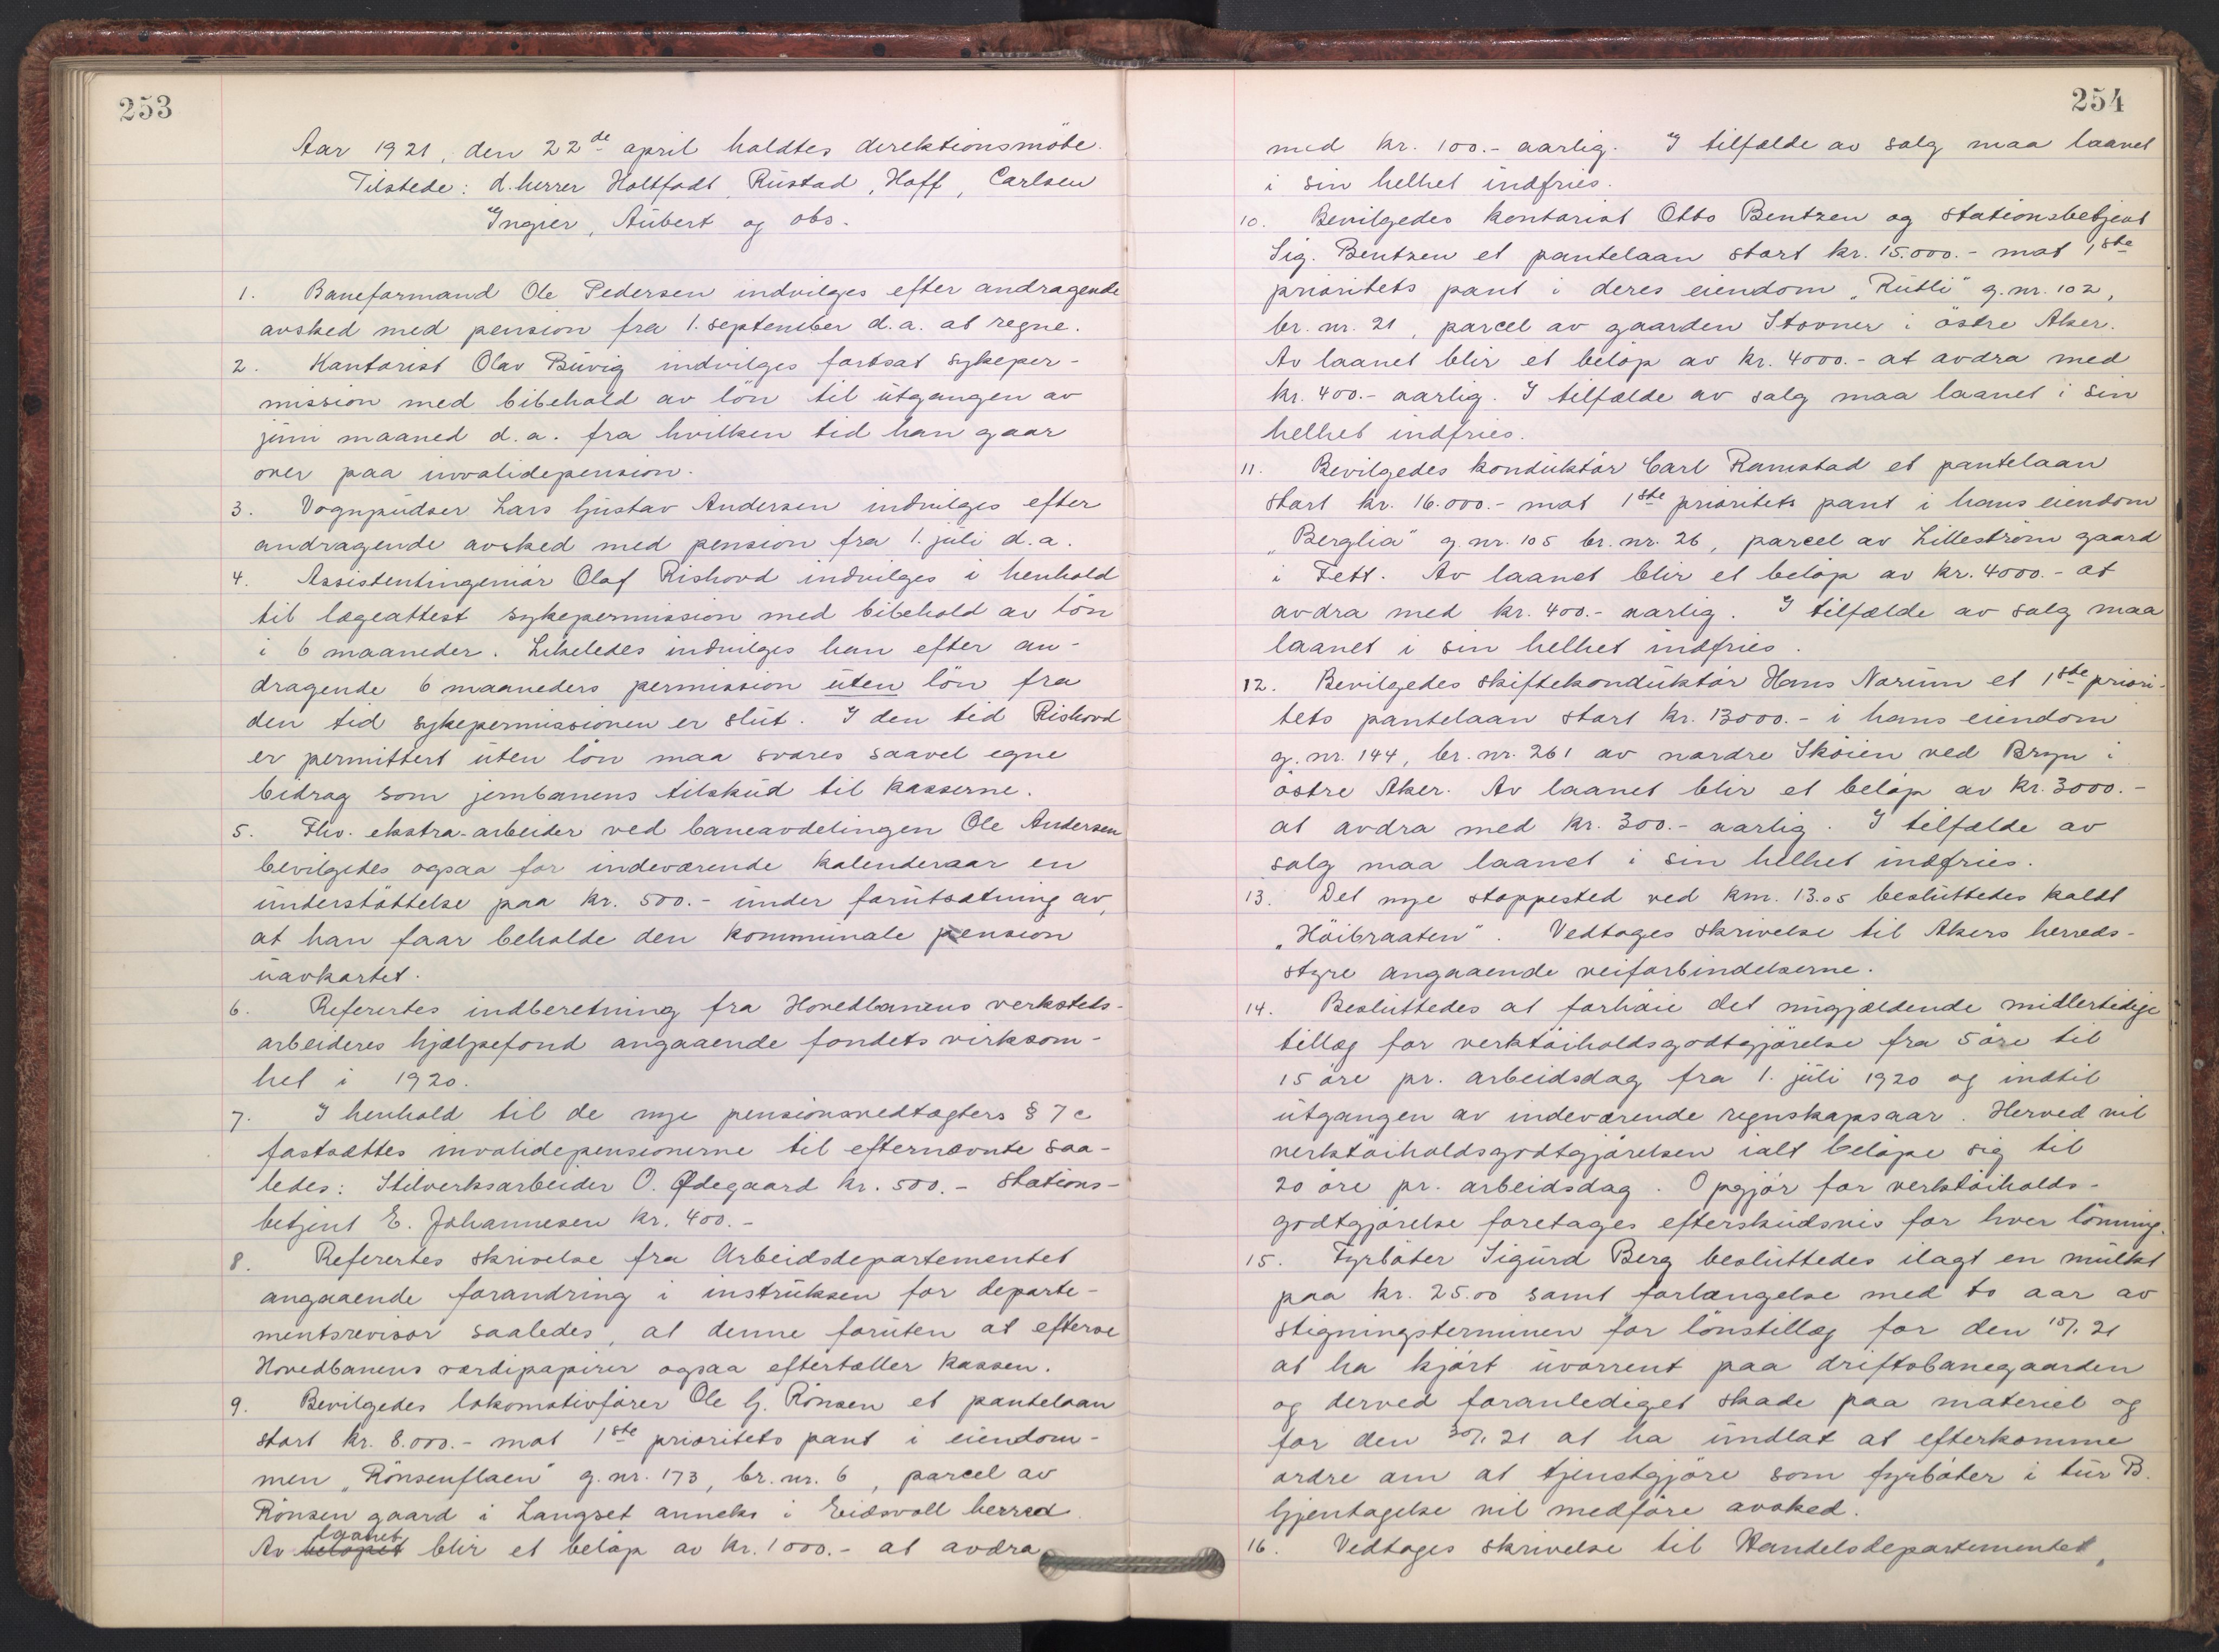 253
Aar 1921, den 22de april holdtes direktionsmöte.
Tilstede: d.herrer Holtfodt, Rustad, Hoff, Carlsen
Ingier, Aubert og obs.
1. Baneformand Ole Pedersen indvilges efter andragende
avsked med pension fra 1. september d.a. at regne.
2. Kontorist Olav Buvig indvilges fortsat sykeper-
mission med bibehold av lön til utgangen av
juni maaned d.a. fra hvilken tid han gaar
over paa invalidepension.
3. Vognpudser Lars Gustav Andersen indvilges efter
andragende avsked med pension fra 1. juli d.a.
4. Assistentingeniör Olaf Rishovd indvilges i henhold
til lægeattest sykepermission med bibehold av lön
i 6 maaneder. Likeledes indvilges han efter an-
dragende 6 maaneders permission uten lön fra
den tid sykepermissionen er slut. I den tid Rishovd
er permittert uten lön maa svares saavel egne
bidrag som jernbanens tilskud til kasserne.
5. Fhv. ekstra-arbeider ved baneavdelingen Ole Andersen
bevilgedes ogsaa for indeværende kalenderaar en
understöttelse paa kr. 500.- under forutsætning av,
at han faar beholde den kommunale pension
uavkortet.
6. Referertes indberetning fra Hovedbanens verksteds-
arbeideres hjælpefond angaaende fondets virksom-
het i 1920.
7. I henhold til de nye pensionsvedtægters § 7 c
fastsættes invalidepensionerne til efternævnte saa-
ledes: Stilverksarbeider O. Ødegaard kr. 500.- Stations-
betjent E. Johannesen kr. 400.-
8. Referertes skrivelse fra Arbeidsdepartementet
angaaende forandring i instruksen for departe-
mentsrevisor saaledes, at denne foruten at efterse
Hovedbanens værdipapirer ogsaa eftertæller kassen.
9. Bevilgedes lokomotivförer Ole G. Rönsen et pantelaan
stort kr. 8.000.- mot 1ste prioritets pant i eiendom-
men „Rönsenflaen" g.nr. 173, br.nr. 6, parcel av
Rönsen gaard i Langset anneks i Eidsvoll herred.
laanet
Av belöpet blir et belöp av kr. 1000.- at avdra
254
med kr. 100.- aarlig. I tilfælde av salg maa laanet
i sin helhet indfries.
10. Bevilgedes kontorist Otto Bentzen og stationsbetjent
Sig. Bentzen et pantelaan stort kr. 15.000.- mot 1ste
prioritets pant i deres eiendom „Rütli" g.nr. 102,
br. nr. 21, parcel av gaarden Stovner i östre Aker.
Av laanet blir et belöp av kr. 4000.- at avdra med
kr. 400.- aarlig. I tilfælde av salg maa laanet i sin
helhet indfries.
11. Bevilgedes konduktör Carl Ramstad et pantelaan
stort kr. 16.000.- mot 1ste prioritets pant i hans eiendom
„Berglia" g.nr. 105 br.nr. 26, parcel av Lilleström gaard
i Fett. Av laanet blir et belöp av kr. 4000.- at
avdra med kr. 400.- aarlig. I tilfælde av salg maa
laanet i sin helhet indfries.
12. Bevilgedes skiftekonduktör Hans Narum et 1ste priori-
tets pantelaan stort kr. 13000.- i hans eiendom
g.nr. 144, br.nr. 261 av nordre Sköien ved Bryn i
östre Aker. Av laanet blir et belöp av kr. 3000.-
at avdra med kr. 300.- aarlig. I tilfælde av
salg maa laanet i sin helhet indfries.
13. Det nye stoppested ved km. 13.05 besluttedes kaldt
„Höibraaten". Vedtages skrivelse til Akers herreds-
styre angaaende veiforbindelserne.
14. Besluttedes at forhöie det nugjældende midlertidige
tillæg for verktöiholdsgodtgjörelse fra 5 öre til
15 öre pr. arbeidsdag fra 1. juli 1920 og indtil
utgangen av indeværende regnskapsaar. Herved vil
verktöiholdsgodtgjörelsen ialt belöpe sig til
20 öre pr. arbeidsdag. Opgjör for verktöiholds-
godtgjörelse foretages efterskudsvis for hver lönning.
15. Fyrböter Sigurd Berg besluttedes ilagt en mulkt
paa kr. 25.00 samt forlængelse med to aar av
stigningsterminen for lönstillæg for den 15/1 21
at ha kjört uvörrent paa driftsbanegaarden
og derved foranlediget skade paa materiel og
for den 30/1 21 at ha undlat at efterkomme
ordre om at tjenstgjöre som fyrböter i tur B.
Gjentagelse vil medföre avsked.
16. Vedtages skrivelse til Handelsdepartementet,